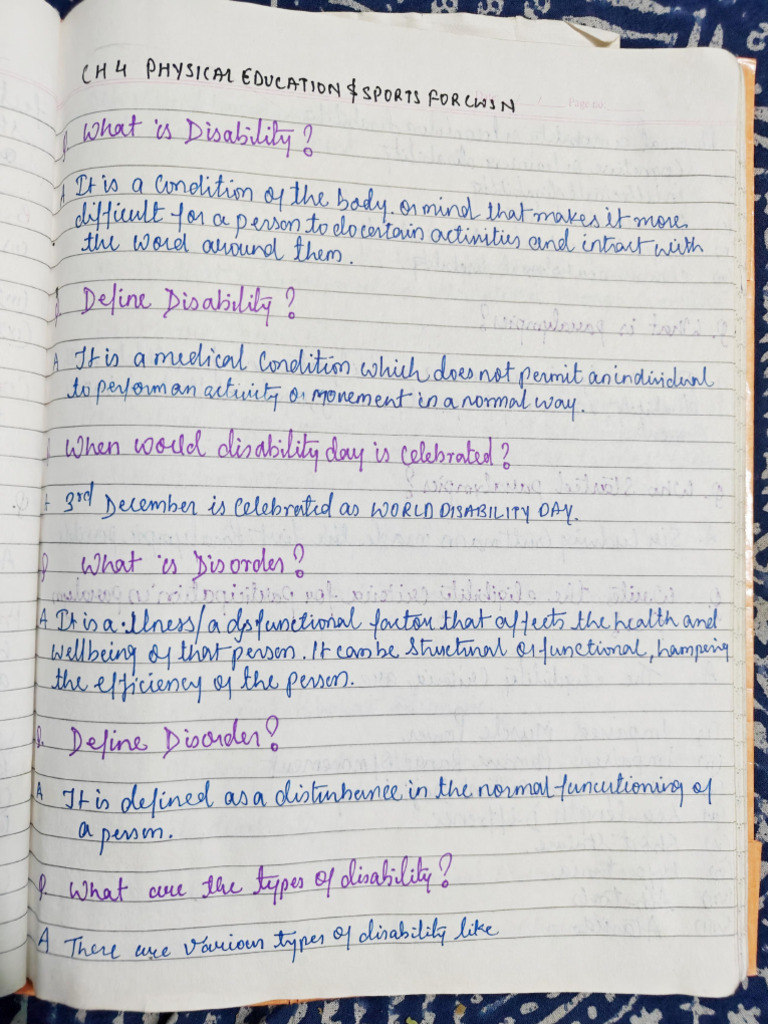 CH 4 PHYSICAL EDUCATION & SPORTS FOR CWSN
Page no
Q What is Disability?
A It is a condition of the body. or mind that makes it more
difficult for a person to do certain activities and intract with
the word around them.
Q Define Disability?
A It is a medical condition which does not permit an individual
to perform an activity or movement in a normal way.
Q When world disability day is celebrated?
A 3rd December is celebrated as WORLD DISABILITY DAY.
Q What is Disorder?
A It is a illness/a dysfunctional factor that affects the health and
wellbeing of that person. It can be structural or functional, hampering
the efficiency of the person.
Q. Define Disorder?
A It is defined as a disturbance in the normal funcutioning of
a person.
Q. What are the types of disability?
A There are various types of disability like